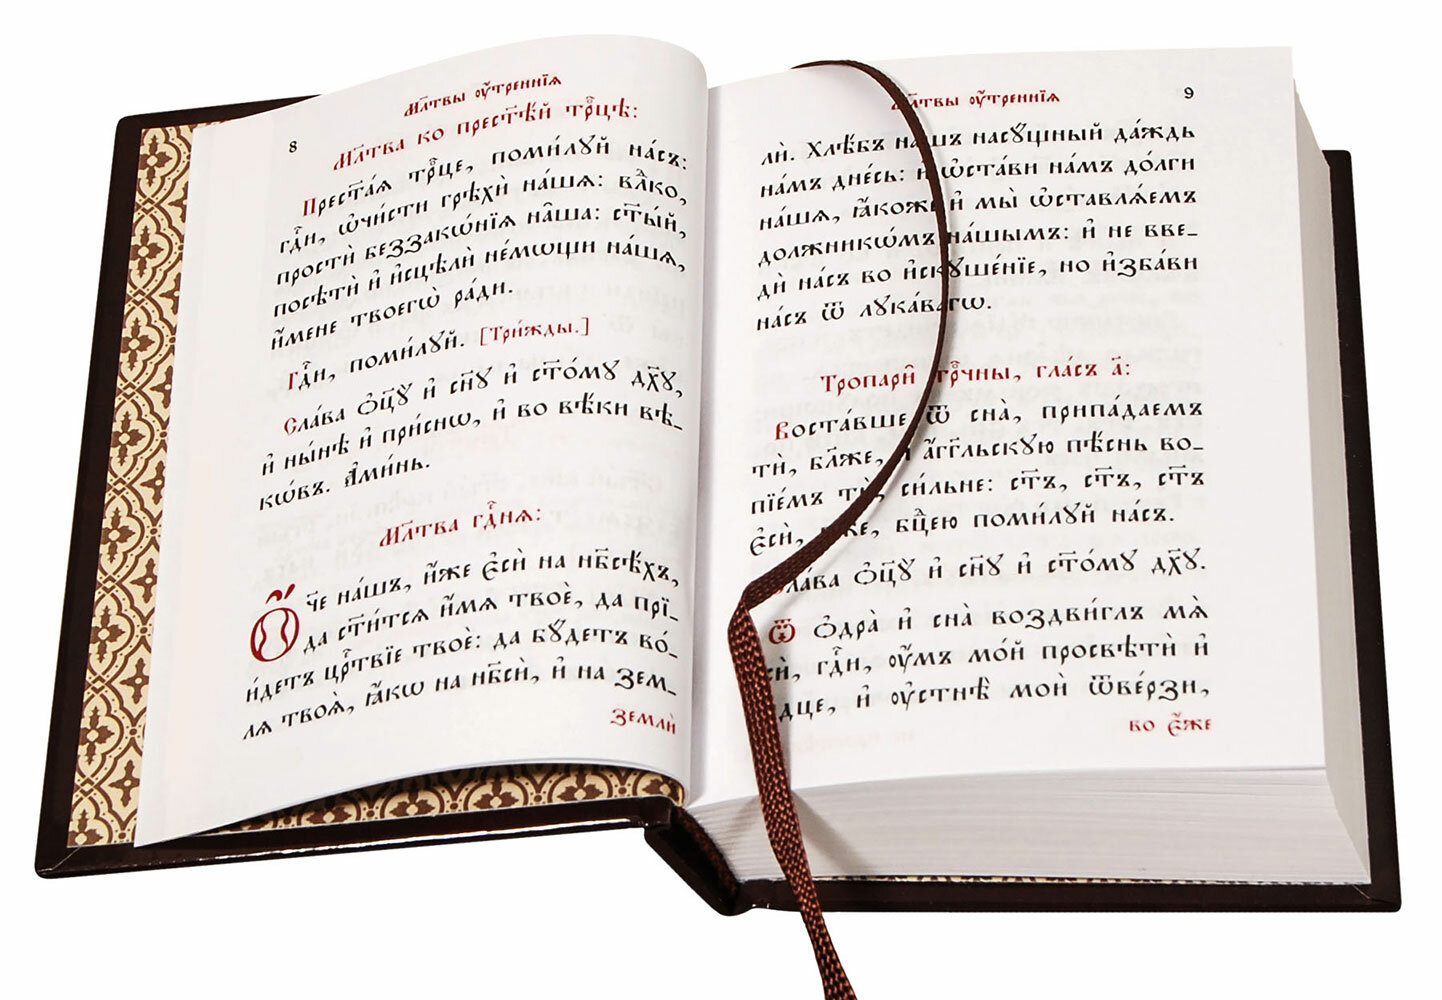 8
Мл҃твы оу҆́трєннїѧ
Мл҃тва ко прест҃ѣ́й трⷪ҇цѣ:
Прест҃а́ѧ трⷪ҇це, поми́лꙋй на́съ:
гдⷭ҇и, ѡ҆чи́сти грѣхѝ на́шѧ: влⷣко,
простѝ беззакѡ́нїѧ на̑ша: ст҃ы́й,
посѣтѝ и҆ и҆сцѣлѝ не́мѡщи на́шѧ,
и҆́мене твоегѡ̀ ра́ди.
Гдⷭ҇и, поми́лꙋй. [Три́жды.]
Сла́ва ѻ҆ц҃ꙋ̀ и҆ сн҃ꙋ и҆ ст҃о́мꙋ дх҃ꙋ,
и҆ ны́нѣ и҆ при́снѡ, и҆ во вѣ́ки вѣ-
кѡ́въ. А҆ми́нь.
Мл҃тва гдⷭ҇нѧ:
Ѻ҆́ч҃е на́шъ, и҆́же є҆сѝ на нб҃сѣ́хъ,
да ст҃и́тсѧ и҆́мѧ твоѐ, да прї-
и́детъ црⷭ҇твїе твоѐ: да бꙋ́детъ во́-
лѧ твоѧ̀, ꙗ҆́кѡ на нб҃сѝ, и҆ на зем-
землѝ
Мл҃твы оу҆́трєннїѧ
9
лѝ. Хлѣ́бъ на́шъ насꙋ́щный да́ждь
на́мъ дне́сь: и҆ ѡ҆ста́ви на́мъ до́лги
на́шѧ, ꙗ҆́коже и҆ мы̀ ѡ҆ставлѧ́емъ
должникѡ́мъ на́шымъ: и҆ не вве-
дѝ на́съ во и҆скꙋше́нїе, но и҆зба́ви
на́съ ѿ лꙋка́вагѡ.
Тропари̑ трⷪ҇чны, гла́съ а҃:
Воста́вше ѿ сна̀, припа́даемъ
тѝ, бл҃же, и҆ а҆́гг҃льскꙋю пѣ́снь во-
пїе́мъ тѝ, си́льне: ст҃ъ, ст҃ъ, ст҃ъ
є҆сѝ, бж҃е, бцⷣею поми́лꙋй на́съ.
Сла́ва ѻ҆ц҃ꙋ̀ и҆ сн҃ꙋ и҆ ст҃о́мꙋ дх҃ꙋ.
Ѿ ѻ҆дра̀ и҆ сна̀ воздви́глъ мѧ̀
є҆сѝ, гдⷭ҇и, оу҆́мъ мо́й просвѣтѝ и҆
се́рдце, и҆ оу҆стнѣ̀ моѝ ѿве́рзи,
во є҆́же